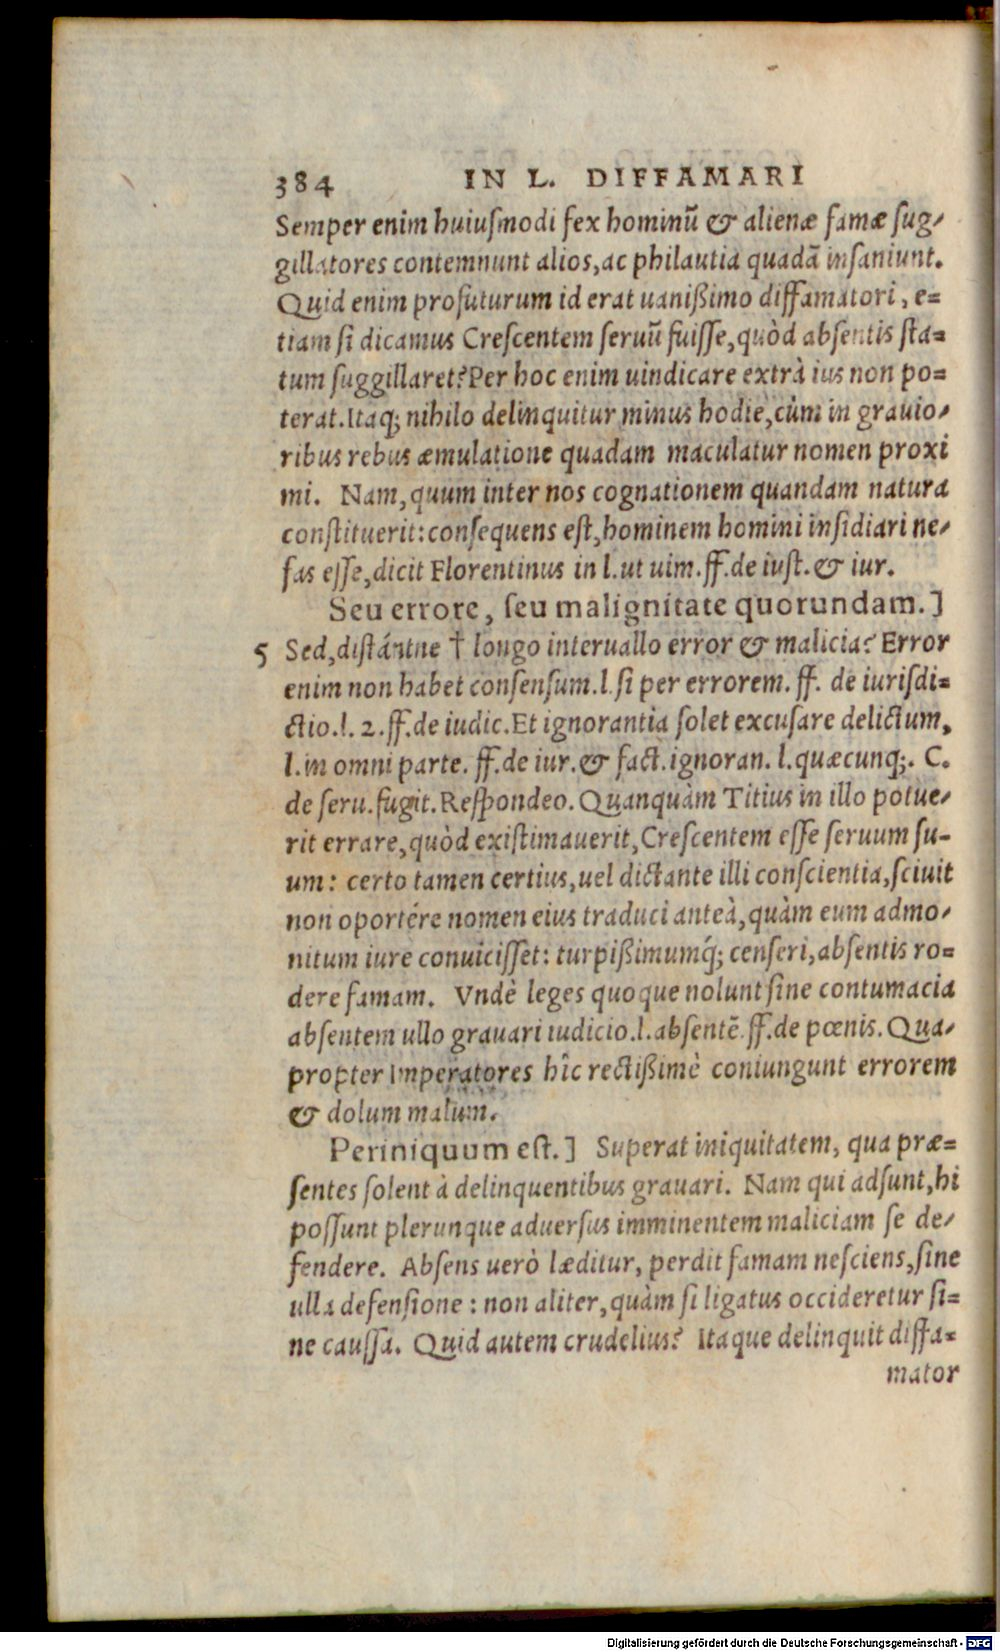 384 IN L. DIFFAMARI
Semper enim huiuſmodi fex hominū & alienæ famæ ſug-
gillatores contemnunt alios, ac philautia quadā inſaniunt.
Quid enim profuturum id erat uanißimo diffamatori, e=
tiam ſi dicamus Creſcentem ſeruū fuiſſe, quòd abſentis ſta=
tum ſuggillaret? Per hoc enim uindicare extrà ius non po=
terat. Itaq; nihilo delinquitur minus hodiè, cùm in grauio-
ribus rebus æmulatione quadam maculatur nomen proxi
mi. Nam, quum inter nos cognationem quandam natura
conſtituerit: conſequens eſt, hominem homini inſidiari ne-
fas eſſe, dicit Florentinus in l. ut uim. ff. de iuſt. & iur.
Seu errore, ſeu malignitate quorundam.]
5 Sed, diſtántne † longo interuallo error & malicia? Error
enim non habet conſenſum. l. ſi per errorem. ff. de iuriſdi=
ctio. l. 2. ff. de iudic. Et ignorantia ſolet excuſare delictum,
l. in omni parte. ff. de iur. & fact. ignoran. l. quæcunq;. C.
de ſeru. fugit. Reſpondeo. Quanquàm Titius in illo potue-
rit errare, quòd exiſtimauerit, Creſcentem eſſe ſeruum ſu-
um: certo tamen certius, uel dictante illi conſcientia, ſciuit
non oportére nomen eius traduci anteà, quàm eum admo-
nitum iure conuiciſſet: turpißimumq́; cenſeri, abſentis ro=
dere famam. Vndè leges quoque nolunt ſine contumacia
abſentem ullo grauari iudicio. l. abſentē. ff. de pœnis. Qua-
propter Imperatores hîc rectißimè coniungunt errorem
& dolum malum.
Periniquum eſt.] Superat iniquitatem, qua præ=
ſentes ſolent à delinquentibus grauari. Nam qui adſunt, hi
poſſunt plerunque aduerſus imminentem maliciam ſe de-
fendere. Abſens uerò læditur, perdit famam neſciens, ſine
ulla defenſione: non aliter, quàm ſi ligatus occideretur ſi=
ne cauſſa. Quid autem crudelius? Itaque delinquit diffa=
mator
Digitalisierung gefördert durch die Deutsche Forschungsgemeinschaft - DFG